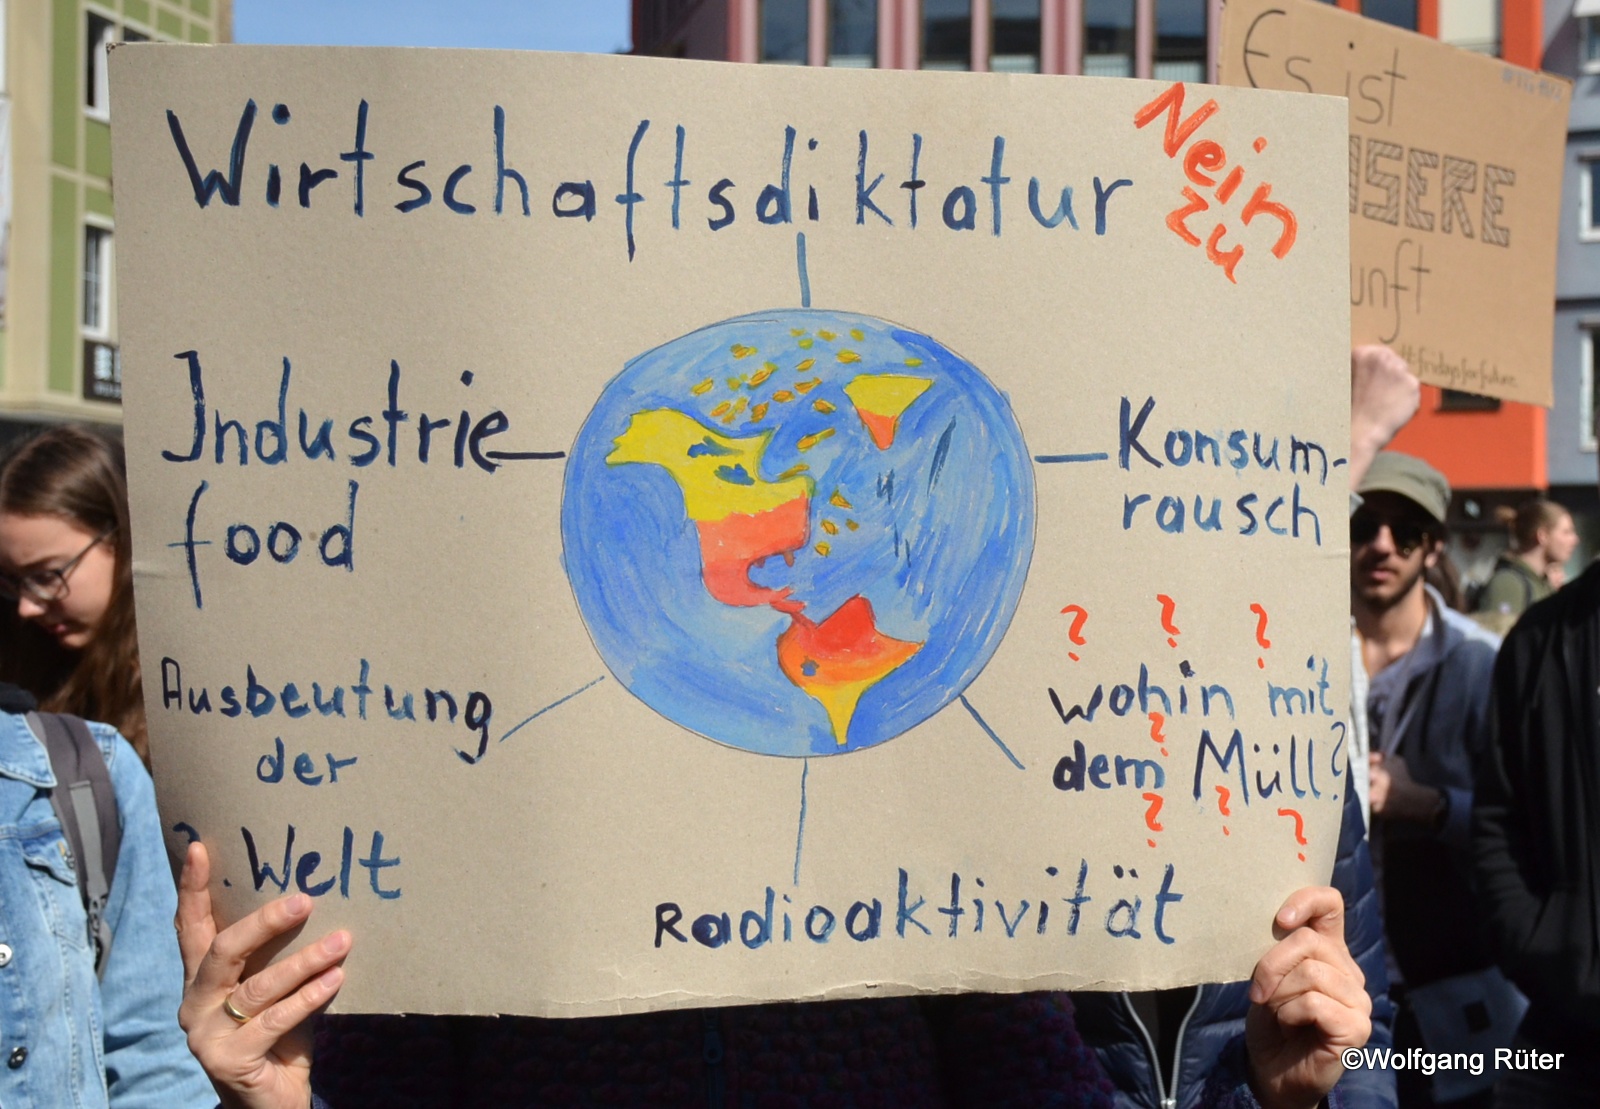 Wirtschaftsdiktatur
Nein
zu
Industrie
food
Konsum-
rausch
Ausbeutung
der
. Welt
? ? ?
wohin mit
?
dem Müll?
? ? ?
Radioaktivität
Es ist
#fridaysforfuture
©Wolfgang Rüter